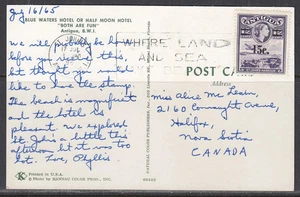 July 16/65
BLUE WATERS HOTEL OR HALF MOON HOTEL
"BOTH ARE FUN"
Antigua, B.W.I.
We will probably be home
before you receive this,
but thought you would
like to have the stamp.
The beach is magnificent
and the hotel is
pleasant. We explored
St. John's a little this
afternoon but it was too
hot. Love, Phyllis
WHERE LAND
AND SEA
ANTIGUA
15c.
POST CARD
Miss Alice McLean,
2160 Connaught Avenue,
Halifax,
Nova Scotia
CANADA
Printed in U.S.A.